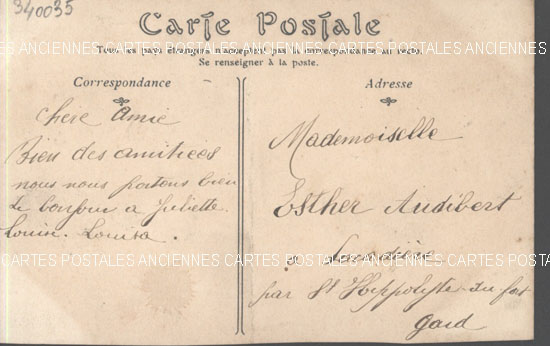 340035
Carte Postale
Tous les pays étrangers n'acceptent pas la correspondance au recto.
Se renseigner à la poste.
CARTES POSTALES ANCIENNES CARTES POSTALES ANCIENNES CARTES POSTALES ANCIENNES
Correspondance
chère amie
Bien des amitiees
nous nous portons bien
Le bonjour a Juliette
Louise. Louisa.
Adresse
Mademoiselle
Esther Audibert
a
par St Hippolyte du fort
Gard
CARTES POSTALES ANCIENNES CARTES POSTALES ANCIENNES CARTES POSTALES ANCIENNES